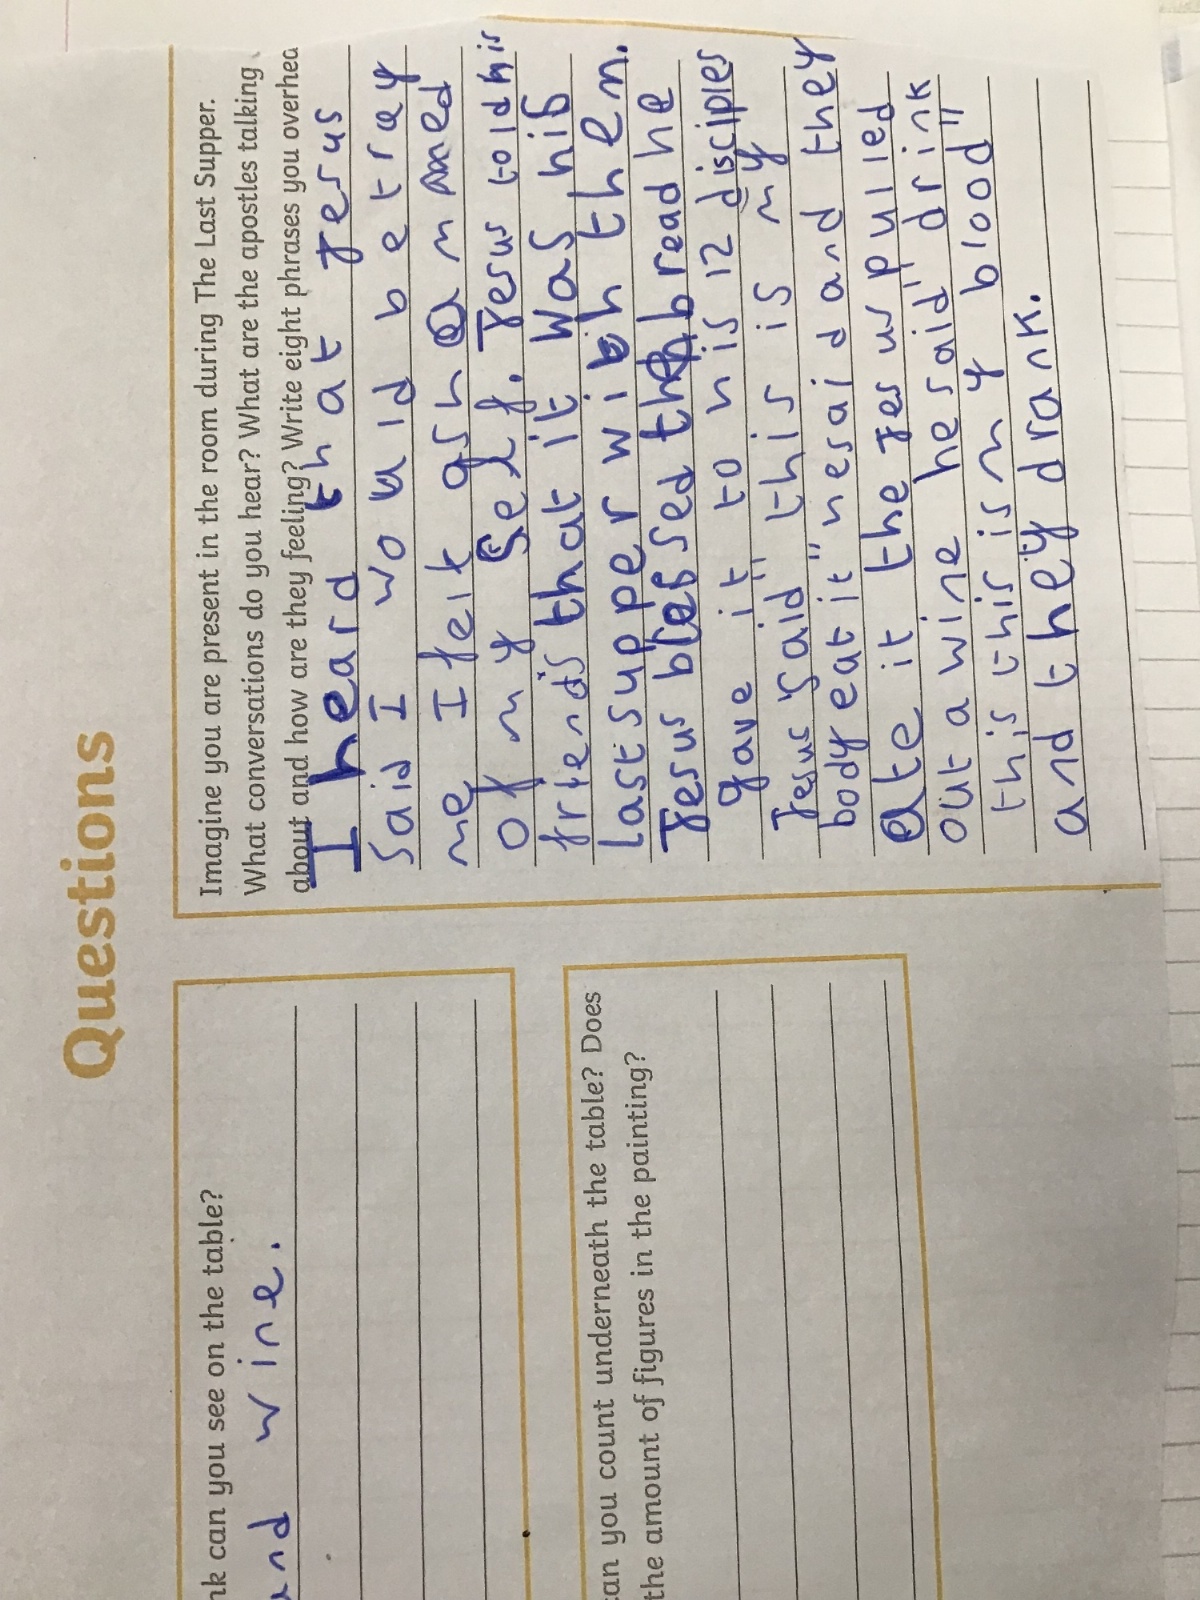 Questions
nk can you see on the table?
and wine.
can you count underneath the table? Does
the amount of figures in the painting?
Imagine you are present in the room during The Last Supper.
What conversations do you hear? What are the apostles talking
about and how are they feeling? Write eight phrases you overhea
I heard that Jesus
said I would betray
me I felt ash a m amed
of my self. Jesus told his
friends that it was his
last supper with them.
Jesus blessed the bread he
gave it to his 12 disciples
Jesus said" this is my
body eat it" he said and they
ate it the Jesus pulled
out a wine he said" drink
this this is my blood"
and they drank.